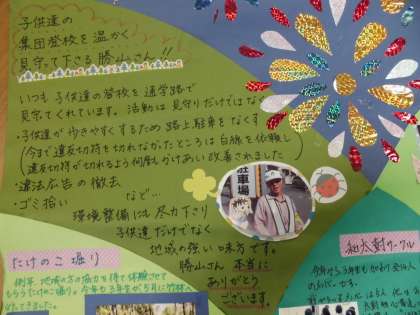 子供達の
集団登校を温かく
見守って下さる 勝山さん!!
いつも 子供達の登校を通学路で
見守てくれています。活動は見守りだけではなく
・子供達が歩きやすくするため路上駐車をなくす
(今まで違反切符を切れなかったところは白線を依頼し
違反切符が切れるよう何度もかけあい改善されました
・違法広告の撤去
・ゴミ拾い
など…
環境整備にも尽力下さり
子供達だけでなく
地域の強い味方です。
勝山さん 本当に
ありがとう
ございます。
駐車場
たけのこ掘り
例年 地域の方の協力を得て体験させて
もらうたけのこ掘り。今年も3年生が5月に竹林へ
してきました。